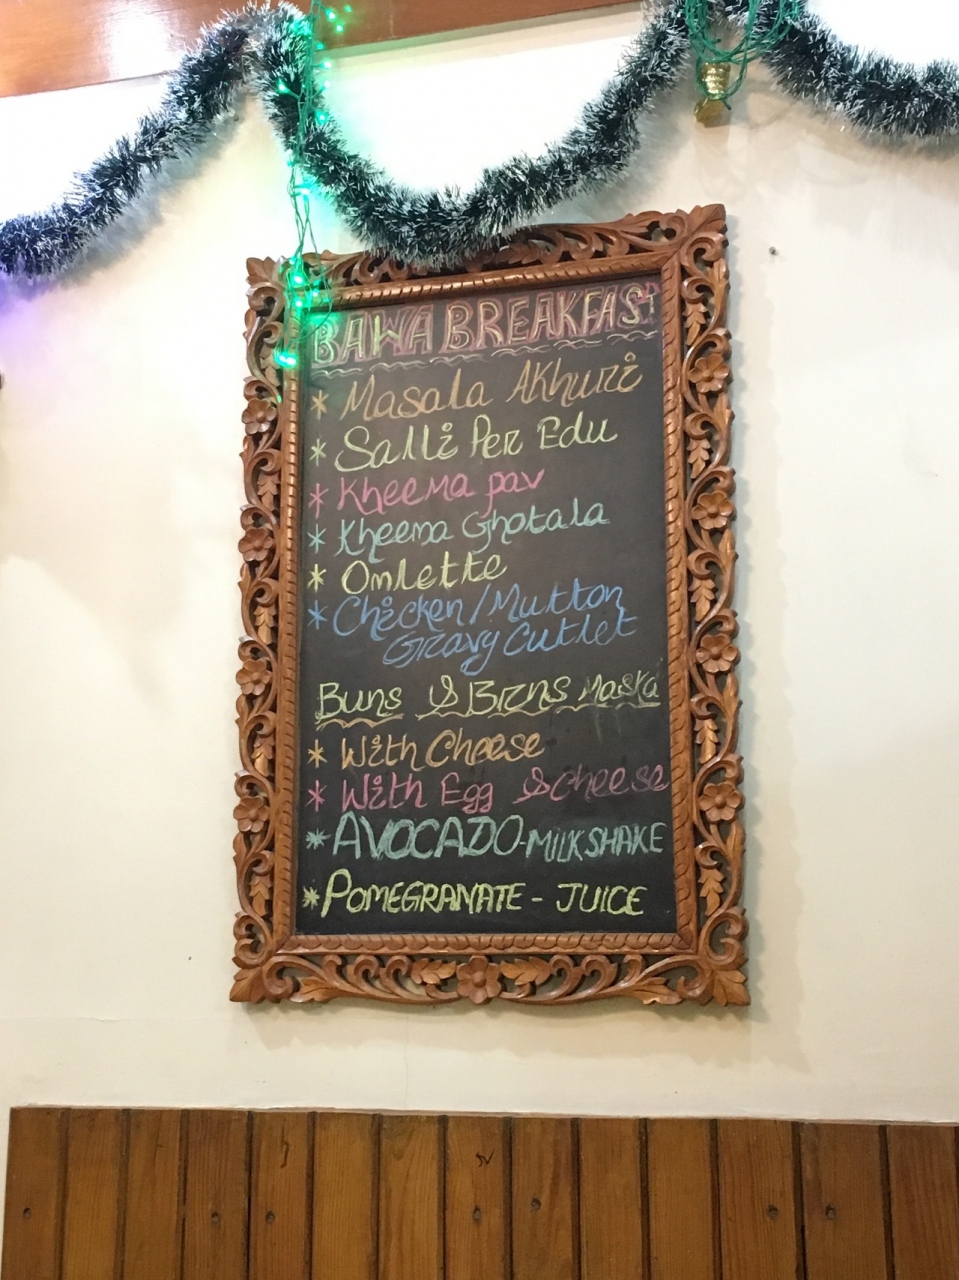 BAWA BREAKFAST
* Masala Akhuri
* Salli Per Edu
* Kheema pav
* Kheema Ghotala
* Omlette
* Chicken/Mutton
Gravy Cutlet
Buns & Brns Maska
* With Cheese
* With Egg & cheese
* AVOCADO-MILKSHAKE
* POMEGRANATE - JUICE